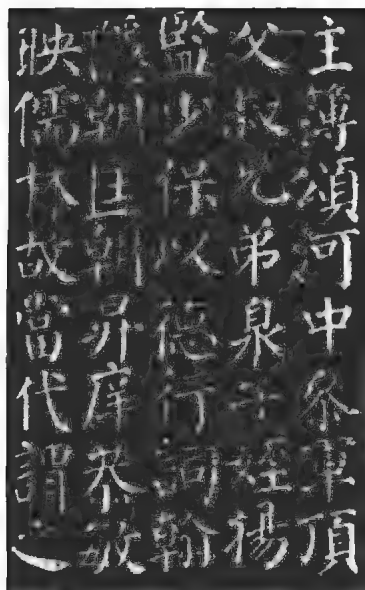 主簿頌河中參軍頂
父叔兄弟泉子姪揚
監少保以德行詞翰
隱朝匡朝昇庠恭敏
映儒林故當代謂之